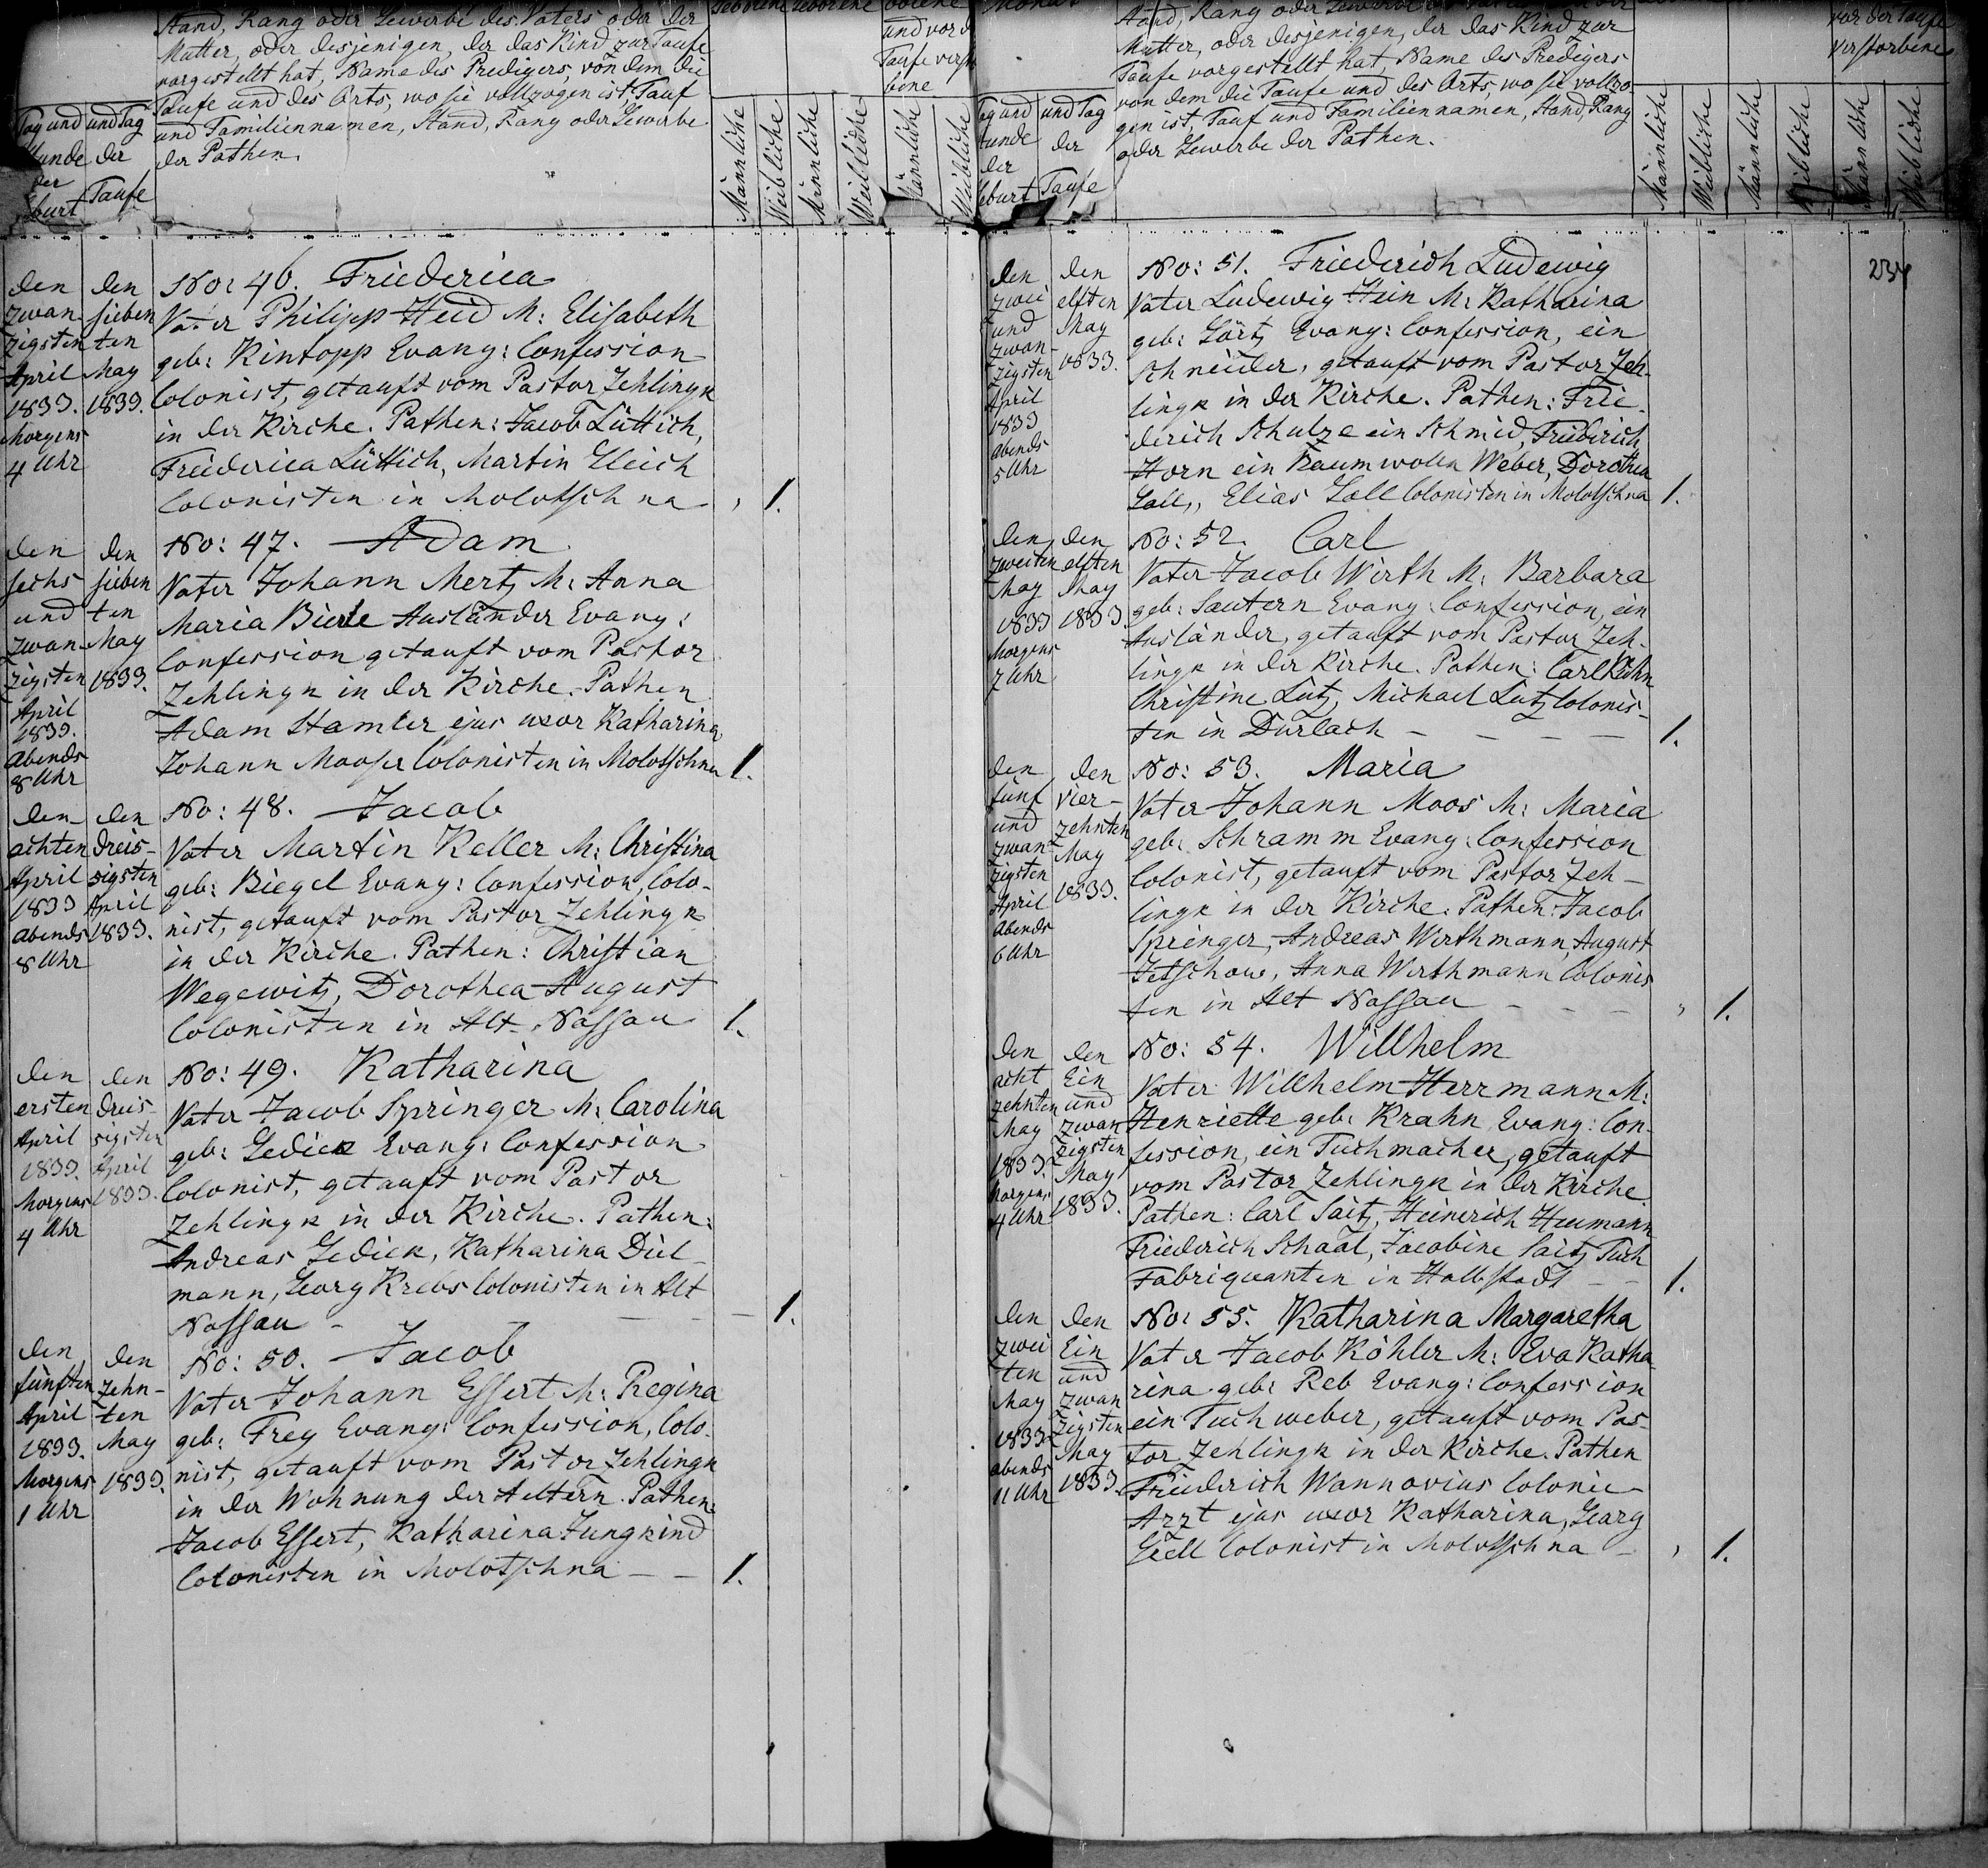 Stand, Rang oder Gewerbe des Vaters oder der
Mutter, oder desjenigen, der das Kind zur Taufe
vorgestellt hat, Name des Predigers, von dem die
Taufe und des Orts, wo sie vollzogen ist, Tauf
und Familiennamen, Stand, Rang oder Gewerbe
der Pathen.
Tag und
Stunde
der
Geburt
und Tag
der
Taufe
und vor d
Taufe
Männliche
Weibliche
Männliche
Weibliche
Männliche
Weibliche
den
zwan-
zigsten
April
1833.
Morgens
4 Uhr
den
sieben
ten
May
1833.
No: 46. Friederica
Vater Philipp Heid M: Elisabeth
geb: Kintopp Evang: Confession
Colonist, getauft vom Pastor Zehlingk
in der Kirche. Pathen: Jacob Lüttich,
Friederica Lüttich, Martin Gleich
Colonisten in Molotschna 1.
den
sechs
und
zwan-
zigsten
April
1833.
abends
8 Uhr
den
sieben
ten
May
1833.
No: 47. Adam
Vater Johann Mertz M: Anna
Maria Bierle Ausländer Evang:
Confession getauft vom Pastor
Zehlingk in der Kirche. Pathen
Adam Stamler ejus uxor Katharina
Johann Mooser Colonisten in Molotschna 1.
den
achten
April
1833
abends
8 Uhr
den
dreis-
sigsten
April
1833.
No: 48. Jacob
Vater Martin Keller M: Christina
geb: Biegel Evang: Confession, Colo-
nist, getauft vom Pastor Zehlingk
in der Kirche. Pathen: Christian
Wegewitz, Dorothea August
Colonisten in Alt-Nassau 1.
den
ersten
April
1833.
Morgens
4 Uhr
den
dreis-
sigsten
April
1833.
No: 49. Katharina
Vater Jacob Springer M: Carolina
geb: Gedick Evang: Confession
Colonist, getauft vom Pastor
Zehlingk in der Kirche. Pathen:
Andreas Gedick, Katharina Diel-
mann, Georg Krebs Colonisten in Alt
Nassau - - - 1.
den
fünften
April
1833.
Morgens
1 Uhr
den
zehn-
ten
May
1833.
No: 50. Jacob
Vater Johann Essert M: Regina
geb: Frey Evang: Confession, Colo-
nist, getauft vom Pastor Zehlingk
in der Wohnung der Aeltern. Pathen:
Jacob Essert, Katharina Jungkind
Colonisten in Molotschna - - 1.
Stand, Rang oder Gewerbe
Mutter, oder desjenigen, der das Kind zur
Taufe vorgestellt hat, Name des Predigers
von dem die Taufe und des Orts, wo sie vollzo-
gen ist, Tauf und Familiennamen, Stand, Rang
oder Gewerbe der Pathen.
Tag und
Stunde
der
Geburt
und Tag
der
Taufe
vor der Taufe
Verstorbene
Männliche
Weibliche
Männliche
Weibliche
Männliche
Weibliche
234
den
zwei
und
zwan-
zigsten
April
1833
abends
5 Uhr
den
elften
May
1833.
No: 51. Friederich Ludewig
Vater Ludewig Hein M: Katharina
geb: Görtz Evang: Confession, ein
Schneider, getauft vom Pastor Zeh-
lingk in der Kirche. Pathen: Frie-
derich Schulze ein Schmid, Friederich
Horn ein Baumwolln Weber, Dorothea
Goll, Elias Goll Colonisten in Molotschna 1.
den
zweiten
May
1833
Morgens
7 Uhr
den
elften
May
1833.
No: 52. Carl
Vater Jacob Wirth M: Barbara
geb: Sautern Evang: Confession, ein
Ausländer, getauft vom Pastor Zeh-
lingk in der Kirche. Pathen: Carl Kühn
Christine Lutz, Michael Lutz Colonis-
ten in Durlach - - - - 1.
den
fünf
und
zwan-
zigsten
April
abends
6 Uhr
den
vier-
zehnten
May
1833.
No: 53. Maria
Vater Johann Moos M: Maria
geb: Schramm Evang: Confession
Colonist, getauft vom Pastor Zeh-
lingk in der Kirche. Pathen: Jacob
Springer, Andreas Wirthmann, August
Jetschow, Anna Wirthmann Colonis
ten in Alt Nassau - - - 1.
den
acht
zehnten
May
1833.
Morgens
4 Uhr
den
Ein
und
zwan
zigsten
May
1833.
No: 54. Willhelm
Vater Willhelm Herrmann M:
Henriette geb: Krahn, Evang: Con-
fession, ein Tuchmacher, getauft
vom Pastor Zehlingk in der Kirche
Pathen: Carl Saitz, Heinrich Heumann
Friederich Schaal, Jacobine Saitz Tuch
Fabriquanten in Halbstadt - - 1.
den
zwei
ten
May
1833.
abends
11 Uhr
den
Ein
und
zwan
zigsten
May
1833.
No: 55. Katharina Margaretha
Vater Jacob Köhler M: Eva Katha
rina geb: Reb Evang: Confession
ein Tuchweber, getauft vom Pas-
tor Zehlingk in der Kirche. Pathen
Friederich Wannovius Colonie-
Arzt ejus uxor Katharina, Georg
Goell Colonist in Molotschna - 1.